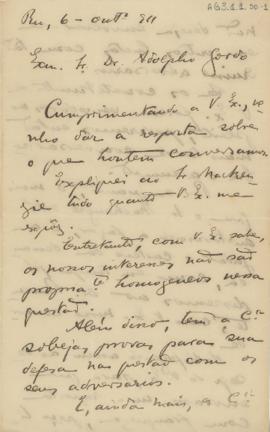 AG3.1.1.50-1
Rio, 6 - outº 911
Exm. Sr. Dr. Adolpho Gordo
Cumprimentando a V. Ex., ve-
nho dar a resposta sobre
o que hontem conversamos.
Expliquei ao Sr. Macken-
zie tudo quanto V. Ex. me
expôz.
Entretanto, com V. Ex. sabe,
os nossos interesses não são
propriate. homogeneos, nessa
questão.
Além disso, tem a Cia
sobejas provas para sua
defesa na questão com os
seus adversarios.
E, ainda mais, a Cia